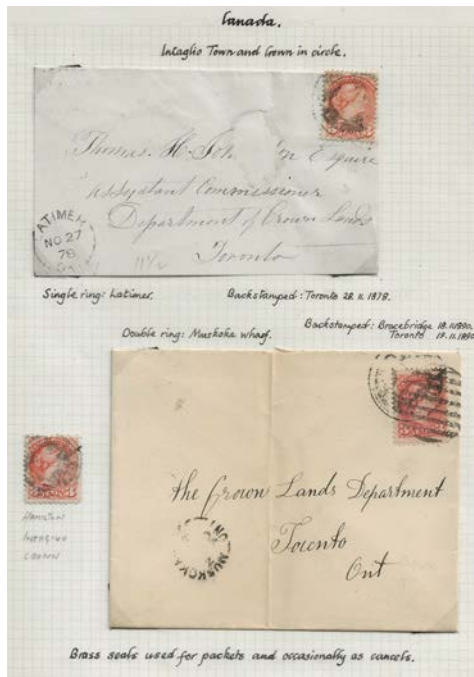 Canada.
Intaglio Town and Crown in circle.
Thomas. H. Esquire
Assistant Commissioner
Department of Crown Lands
Toronto
11½
ATIMER
NO 27
78
Single ring: Latimer.
Backstamped: Toronto 28.11.1878.
Double ring: Muskoka wharf.
Backstamped: Bracebridge 18.11.1890.
Toronto 19.11.1890
The Crown Lands Department
Toronto
Ont
MUSKOKA
ONT
Hamilton
Intaglio
Crown
Brass seals used for packets and occasionally as cancels.